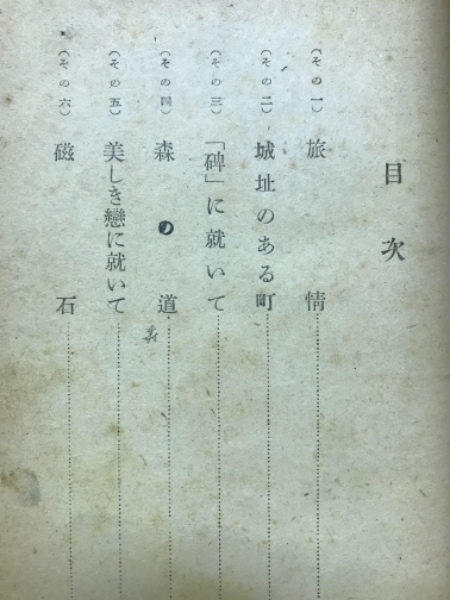 目次
(その一) 旅情
(その二) 城址のある町
(その三) 「碑」に就いて
(その四) 森の道
(その五) 美しき戀に就いて
(その六) 磁石